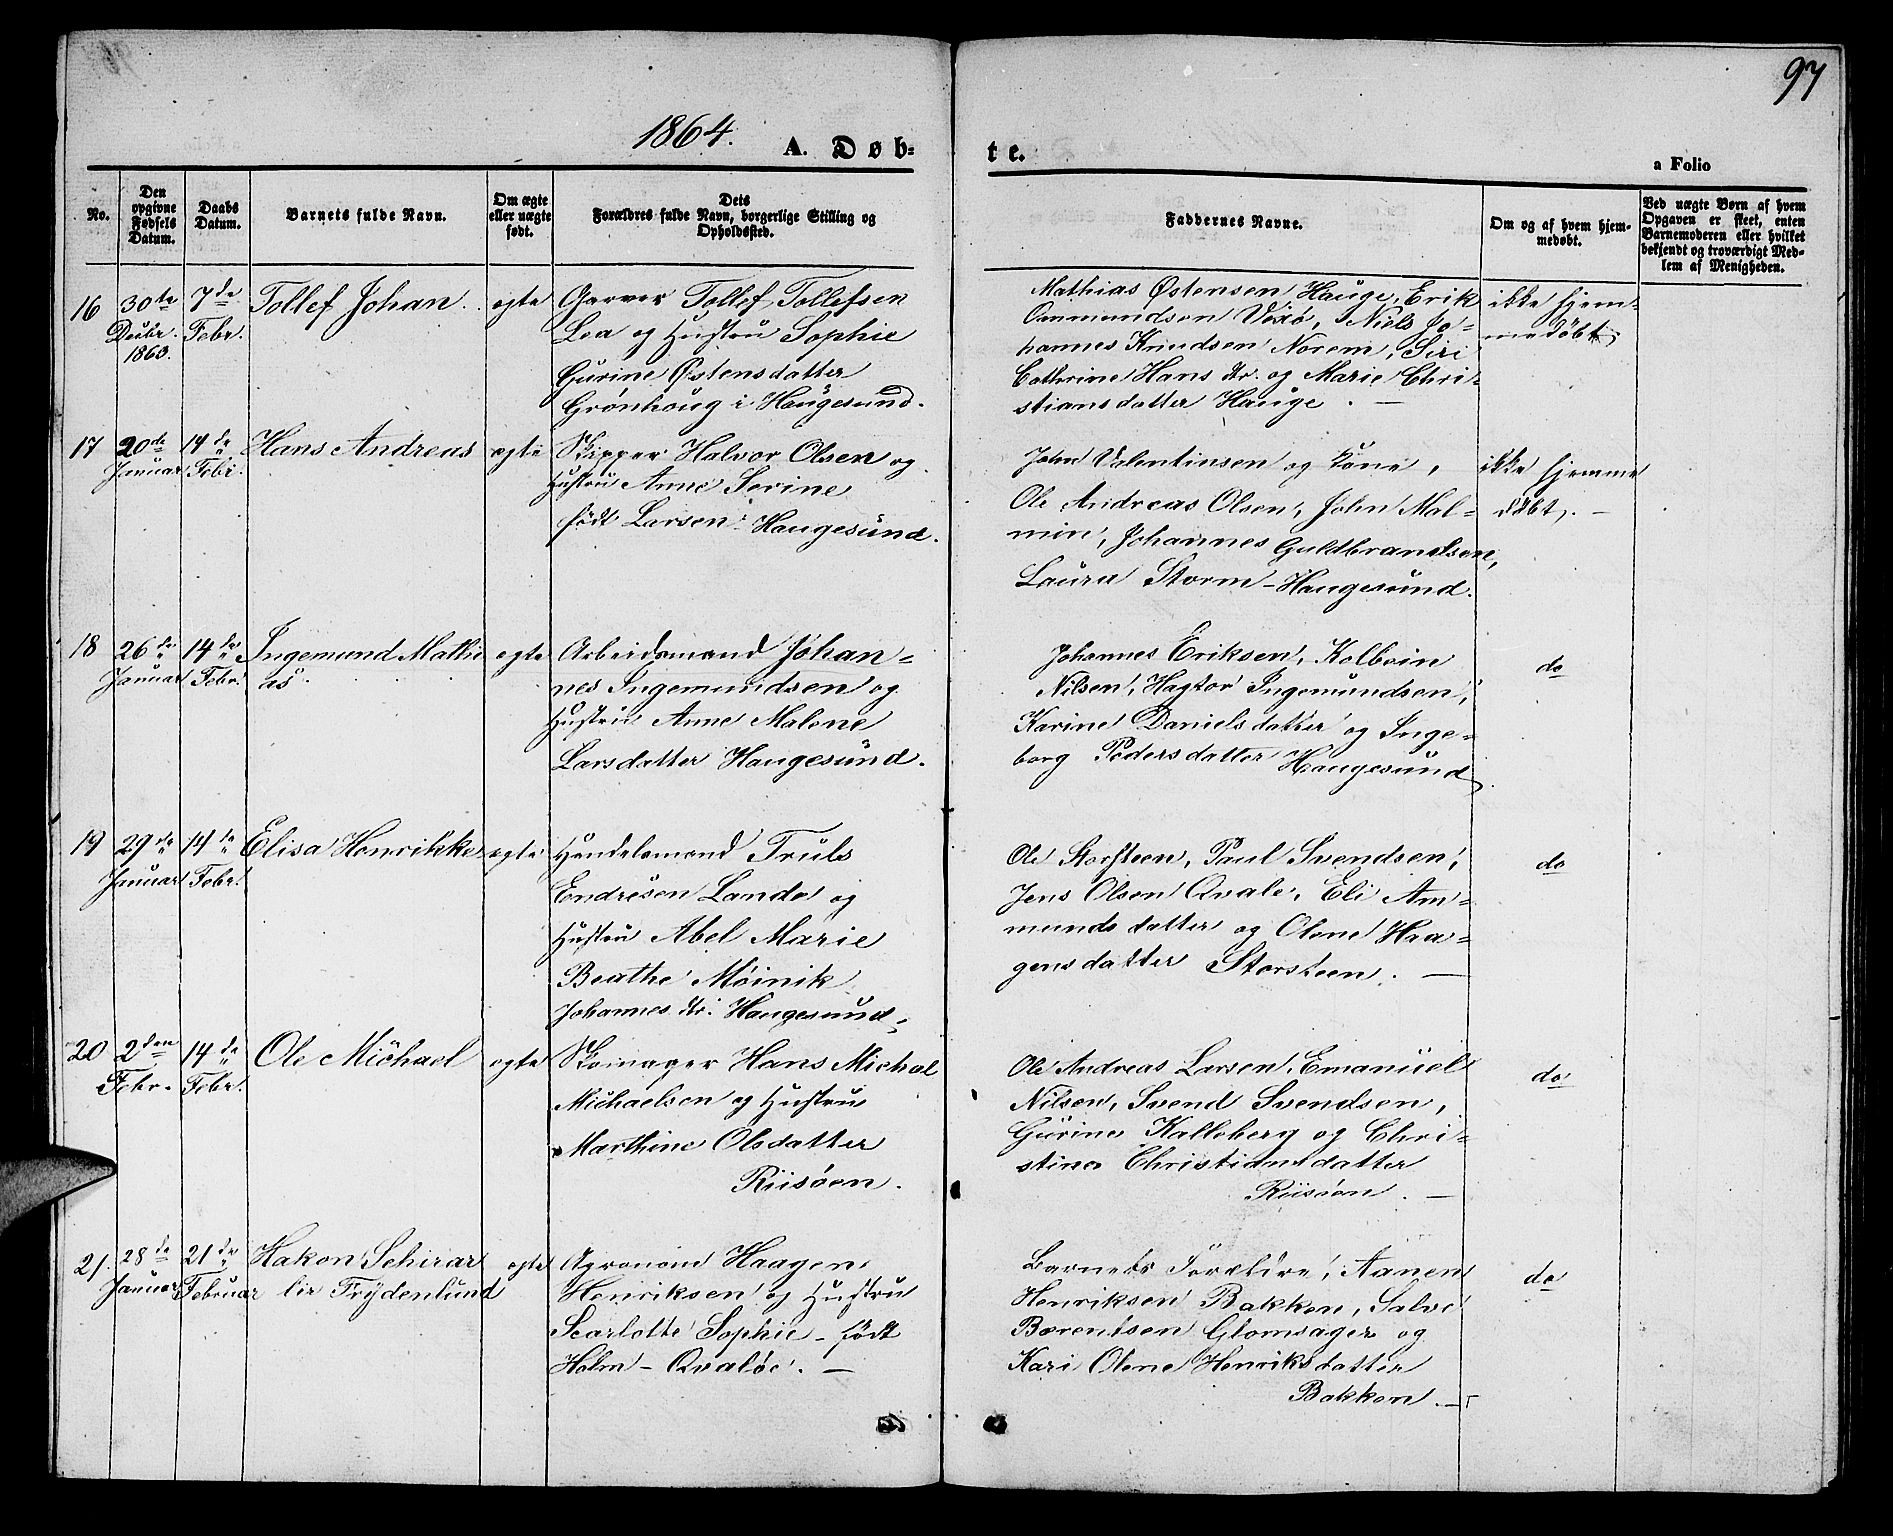 97
1864.
A. Døb-
te.
a Folio
No.
Den opgivne Fødsels Datum.
Daabs Datum.
Barnets fulde Navn.
Om ægte eller uægte født.
Dets Forældres fulde Navn, borgerlige Stilling og Opholdssted.
Faddernes Navne.
Om og af hvem hjemmedøbt.
Ved uægte Børn af hvem Opgaven er skeet, enten Barnemoderen eller hvilket bekjendt og troværdigt Medlem af Menigheden.
16
30te Decbr. 1863.
7de Febr.
Tollef Johan.
egte
Garver Tollef Tollefsen
Lea og Hustru Sophie
Gurine Østensdatter
Grønhoug i Haugesund.
Mathias Østensen Hauge, Erik
Ommundsen Vixø, Niels Jo-
hannes Knudsen Norem, Siri
Cathrine Hans dtr. og Marie Chri-
stiansdatter Hauge. —
ikke hjem-
medøbt,
17
20de Januar
14de Febr.
Hans Andreas
egte
Skipper Halvor Olsen og
Hustru Anne Serine
født Larsen Haugesund.
John Valentinsen og Kone,
Ole Andreas Olsen, John Mal-
min, Johannes Guldbrandsen,
Laura Storm - Haugesund.
ikke hjemme
døbt. -
18
26de Januar
14de Febr.
Ingemund Mathi
as.
egte
Arbeidsmand Johan-
nes Ingemundsen og
Hustru Anne Malene
Larsdatter Haugesund.
Johannes Eriksen, Kolbein
Nilsen, Hagtor Ingemundsen,
Karine Daniels datter og Inge-
borg Peders datter Haugesund
do
19
29de Januar
14de Febr.
Elisa Henrikke
egte
Handelsmand Truls
Endresen Lande og
Hustru Abel Marie
Beathe Møinik
Johannes dtr. Haugesund,
Ole Storsteen, Paul Svendsen,
Jens Olsen Qvale, Eli Am-
munds datter og Olene Haa-
gens datter Storsteen. —
do
20
2den Febr.
14de Febr.
Ole Michael
egte
Skomager Hans Michal
Michaelsen og Hustru
Marthine Olsdatter
Riisøen.
Ole Andreas Larsen, Emanuel
Nilsen, Svend Svendsen,
Gurine Kalleberg og Chri-
stine Christiansdatter
Riisøen. —
do
21.
28de Januar
21de Februar
Hakon Schirar
lir Frydenlund
egte
Agronom Haagen
Henriksen og Hustru
Scarlotte Sophie - født
Holm - Qvaløe. —
Barnets Forældre, Aanen
Henriksen Bakken, Salve
Bærentsen Glomsager og
Kari Olene Henriks datter
Bakken. —
do